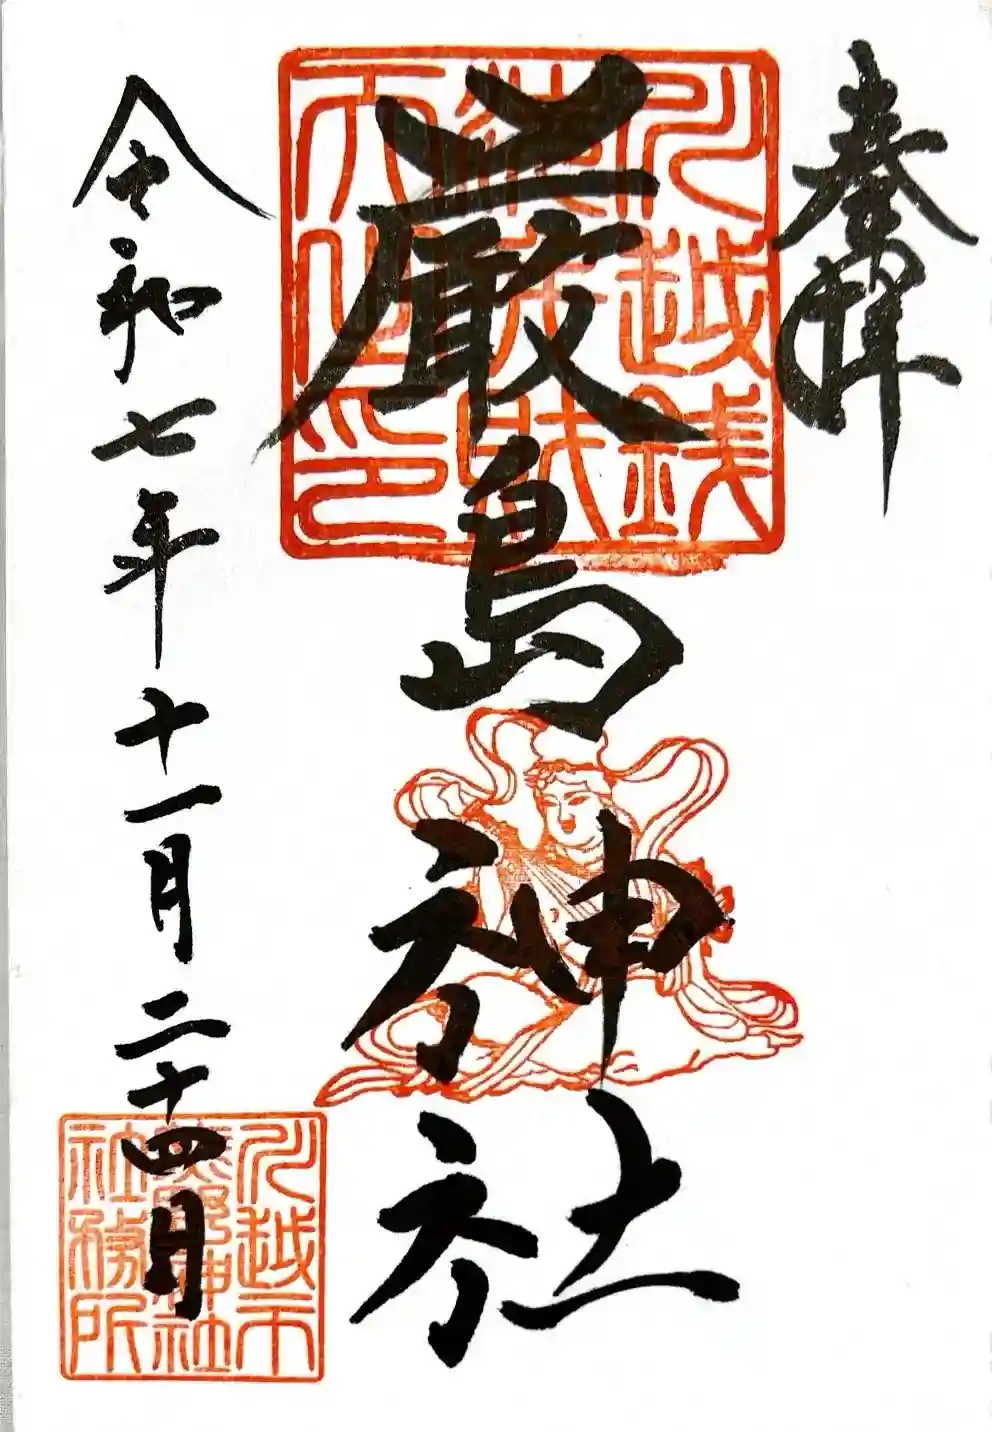 奉拝
川越銭
洗弁財
天之印
厳島神社
令和七年十一月二十四日
川越市
熊野神社
社務所